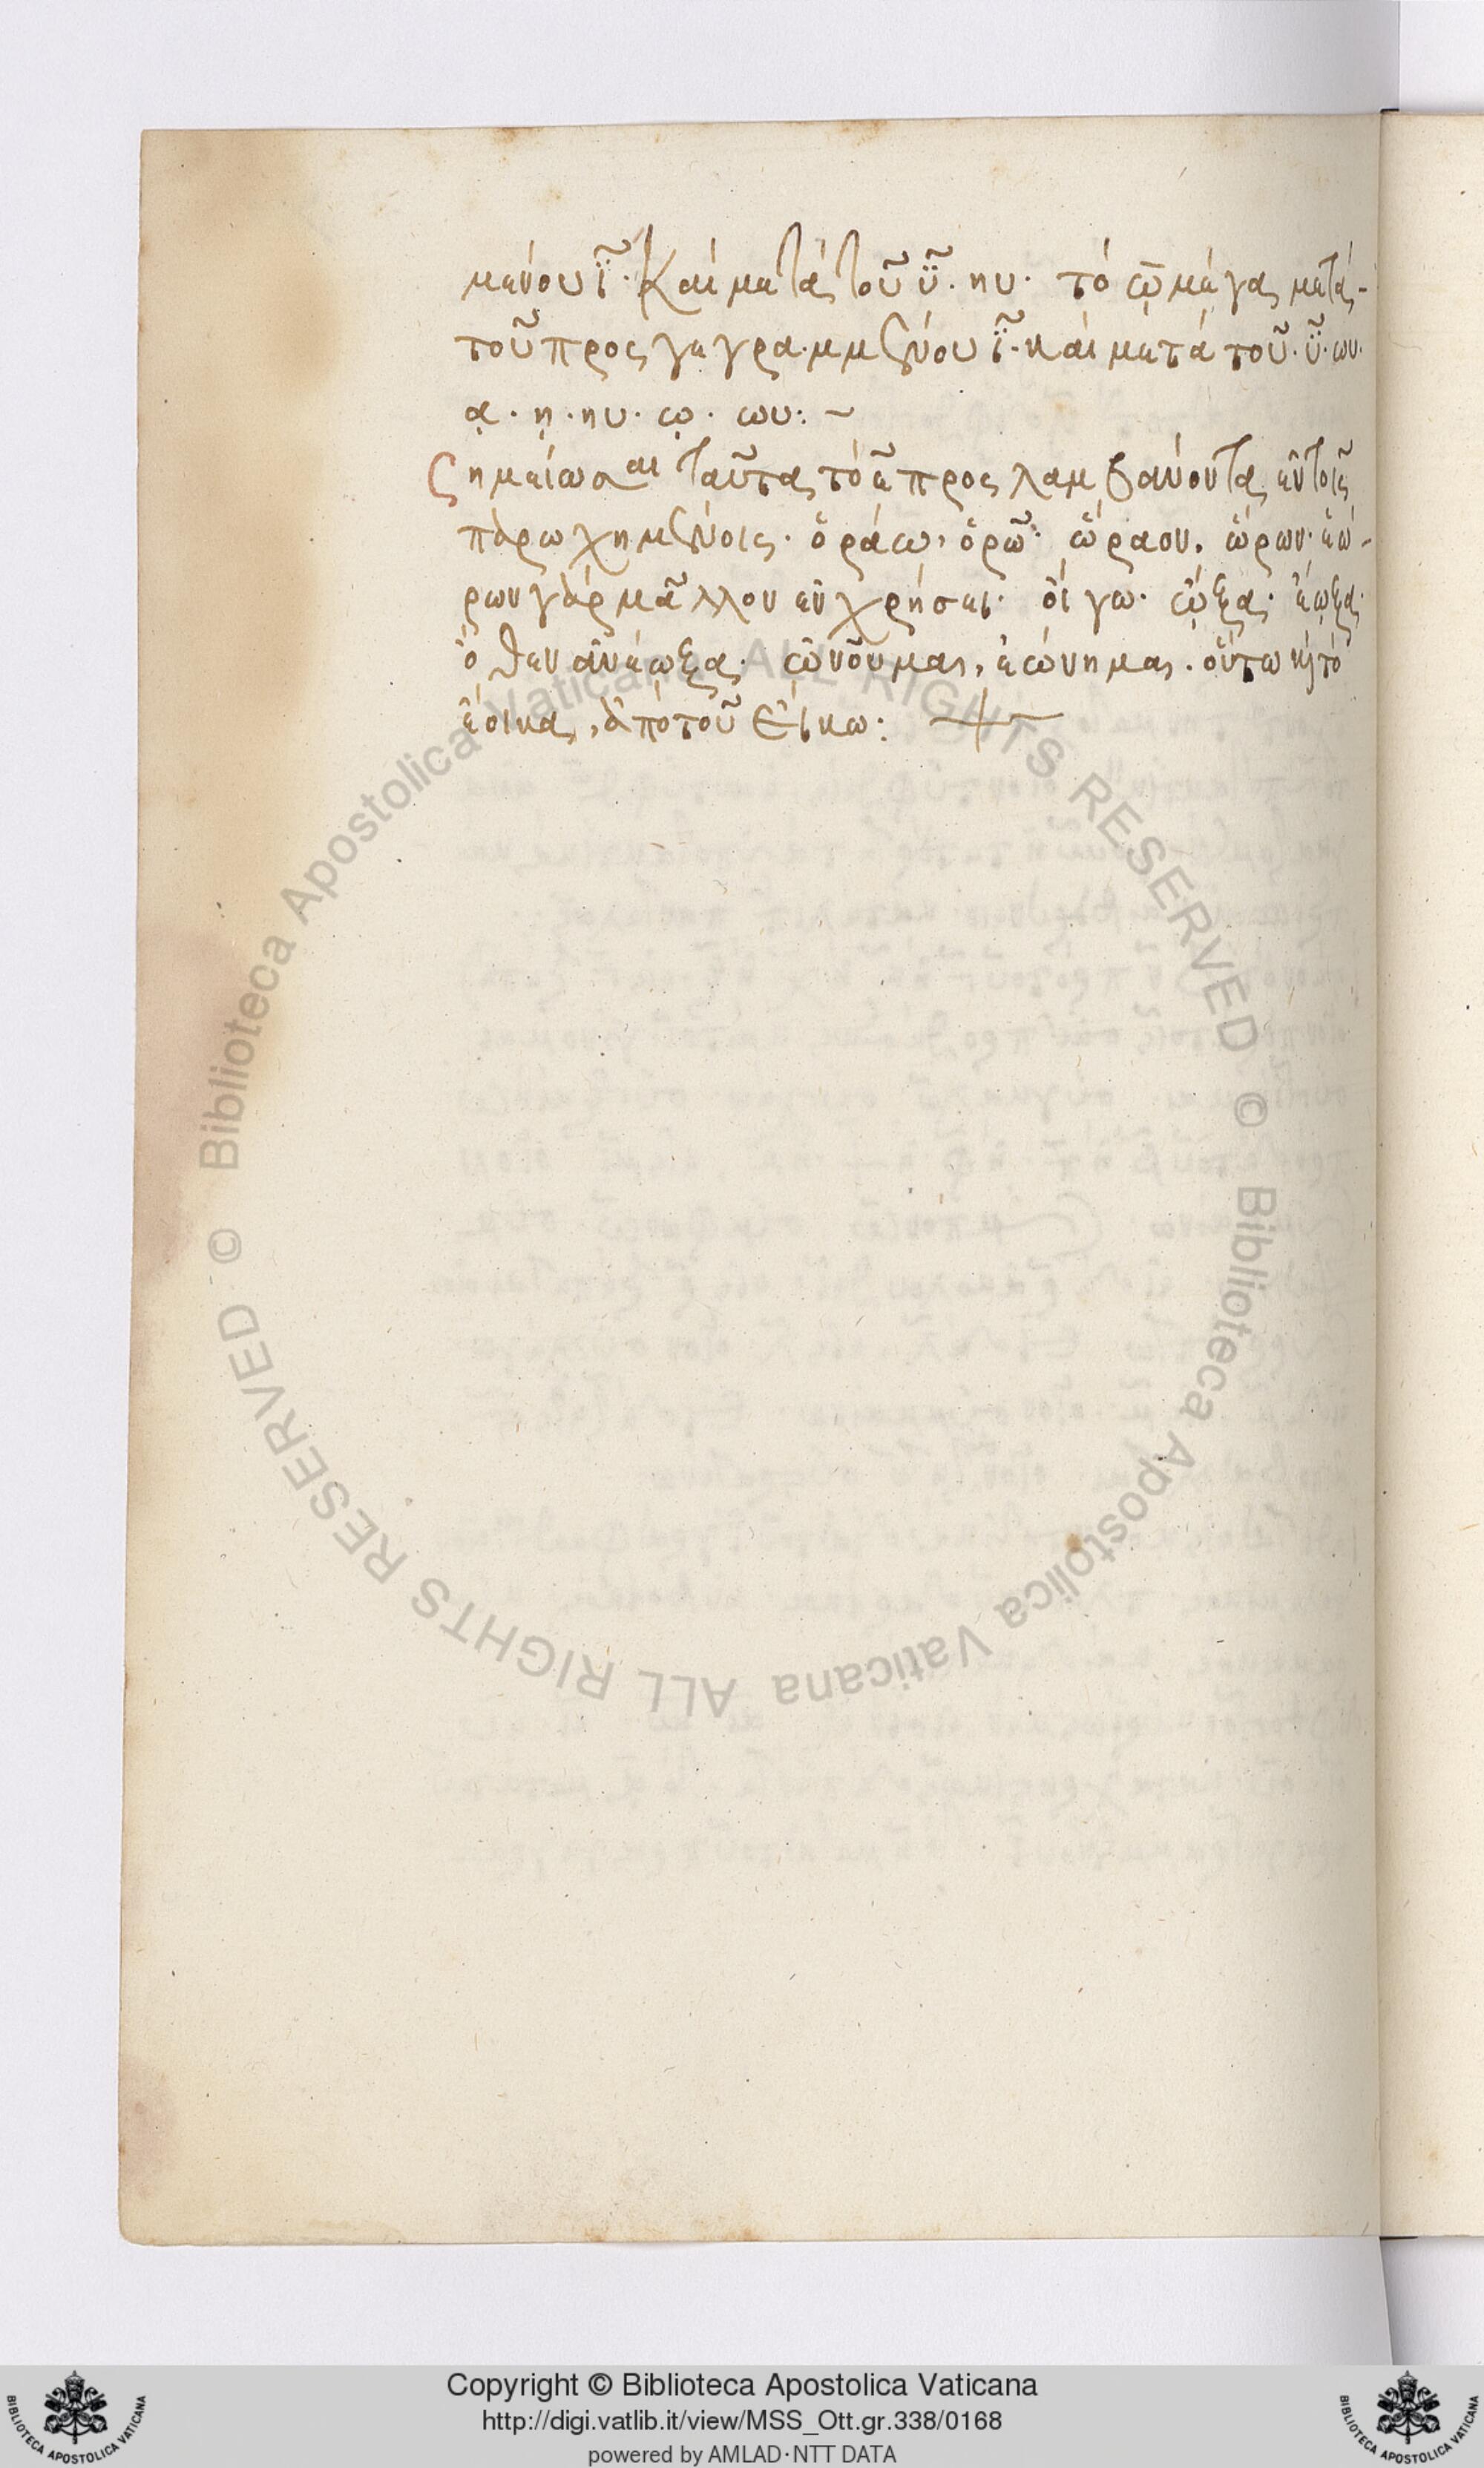 μένου ϊ̃· Καὶ μετὰ τοῦ ϋ̃· ηυ· τὸ ω̄ μέγα, μετὰ-
τοῦ προσγεγραμμένου ϊ̃· καὶ μετὰ τοῦ· ϋ̃· ωυ·
ᾳ· ῃ· ηυ· ῳ· ωυ: ~
Σημείωσαι ταῦτα τὸ ε̃ προσλαμβάνοντα, ἐν τοῖς
παρωχημένοις· ὁράω, ὁρῶ· ὥραον, ὥρων· ἑώ-
ρων γὰρ μᾶλλον ἐν χρήσει· οἴγω· ᾦξα· ἔῳξα·
ὅθεν ἀνέῳξα· ὠνοῦμαι, ἐώνημαι. οὕτω κ τὸ
ἔοικα, ἀπὸ τοῦ εἴκω:
Biblioteca Apostolica Vaticana ALL RIGHTS RESERVED ©
Biblioteca Apostolica Vaticana ALL RIGHTS RESERVED ©
Copyright © Biblioteca Apostolica Vaticana
http://digi.vatlib.it/view/MSS_Ott.gr.338/0168
powered by AMLAD·NTT DATA
BIBLIOTECA APOSTOLICA VATICANA
BIBLIOTECA APOSTOLICA VATICANA